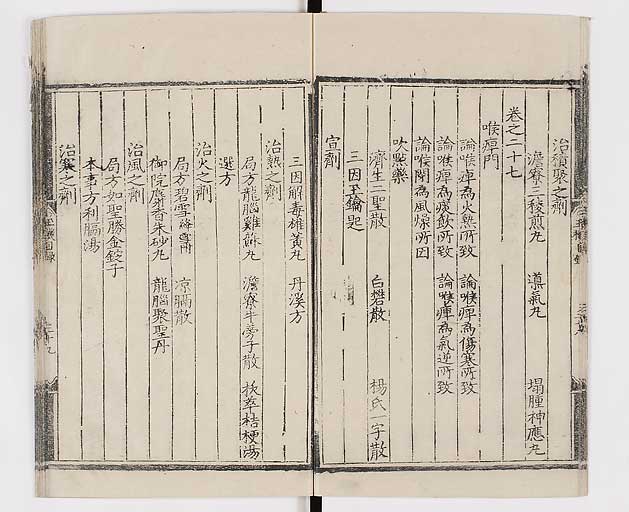 治積聚之劑
澹寮三稜煎丸 導氣丸 塌腫神應丸
卷之二十七
喉痺門
論喉痺為火熱所致 論喉痺為傷寒所致
論喉痺為痰飲所致 論喉痺為氣逆所致
論喉閉為風燥所因
吹點藥
濟生二聖散 白礬散 楊氏一字散
三因玉鑰匙
宣劑
三因解毒雄黃丸 丹溪方
治熱之劑
局方龍腦雞蘇丸 澹寮牛蒡子散 拔萃桔梗湯
選方
治火之劑
局方碧雪 涼膈散
御院麝香朱砂丸 龍腦聚聖丹
治風之劑
局方如聖勝金鋌子
本事方利膈湯
治寒之劑